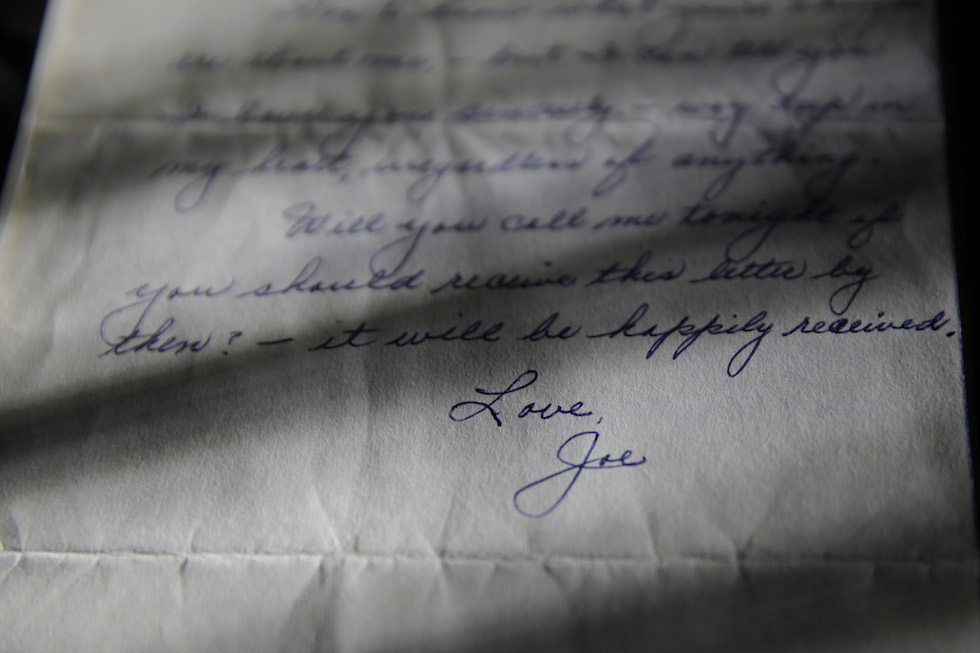 me. - but I can tell you
I love you sincerely - way deep in
my heart, regardless of anything.
Will you call me tonight if
you should receive this letter by
then? - it will be happily received.
Love,
Joe